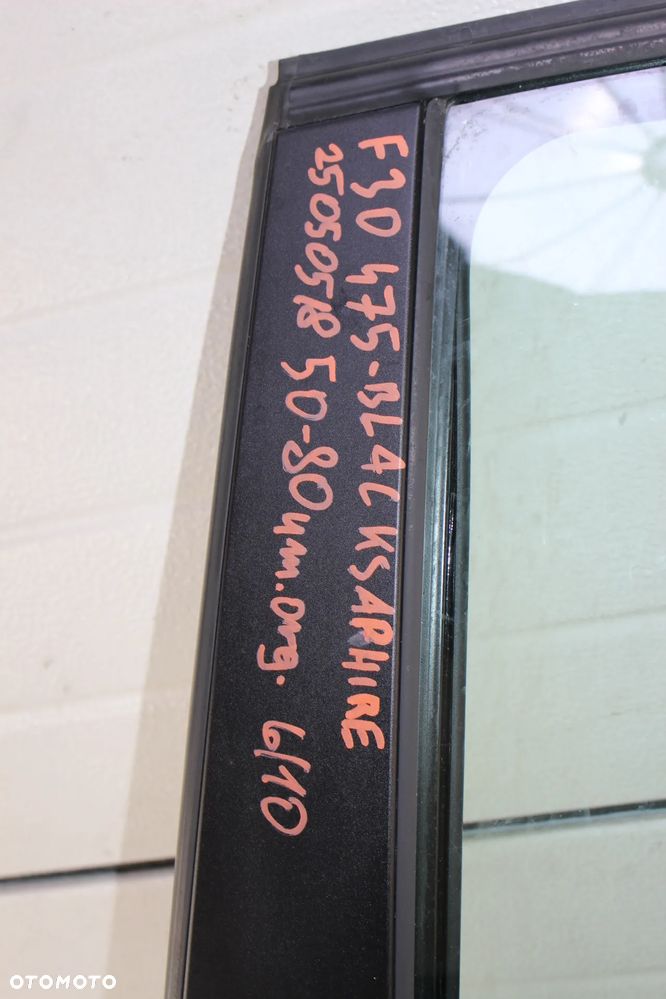 F30 475-BLACKSAPHIRE
25050518 50-80um.org. 6/10
OTOMOTO